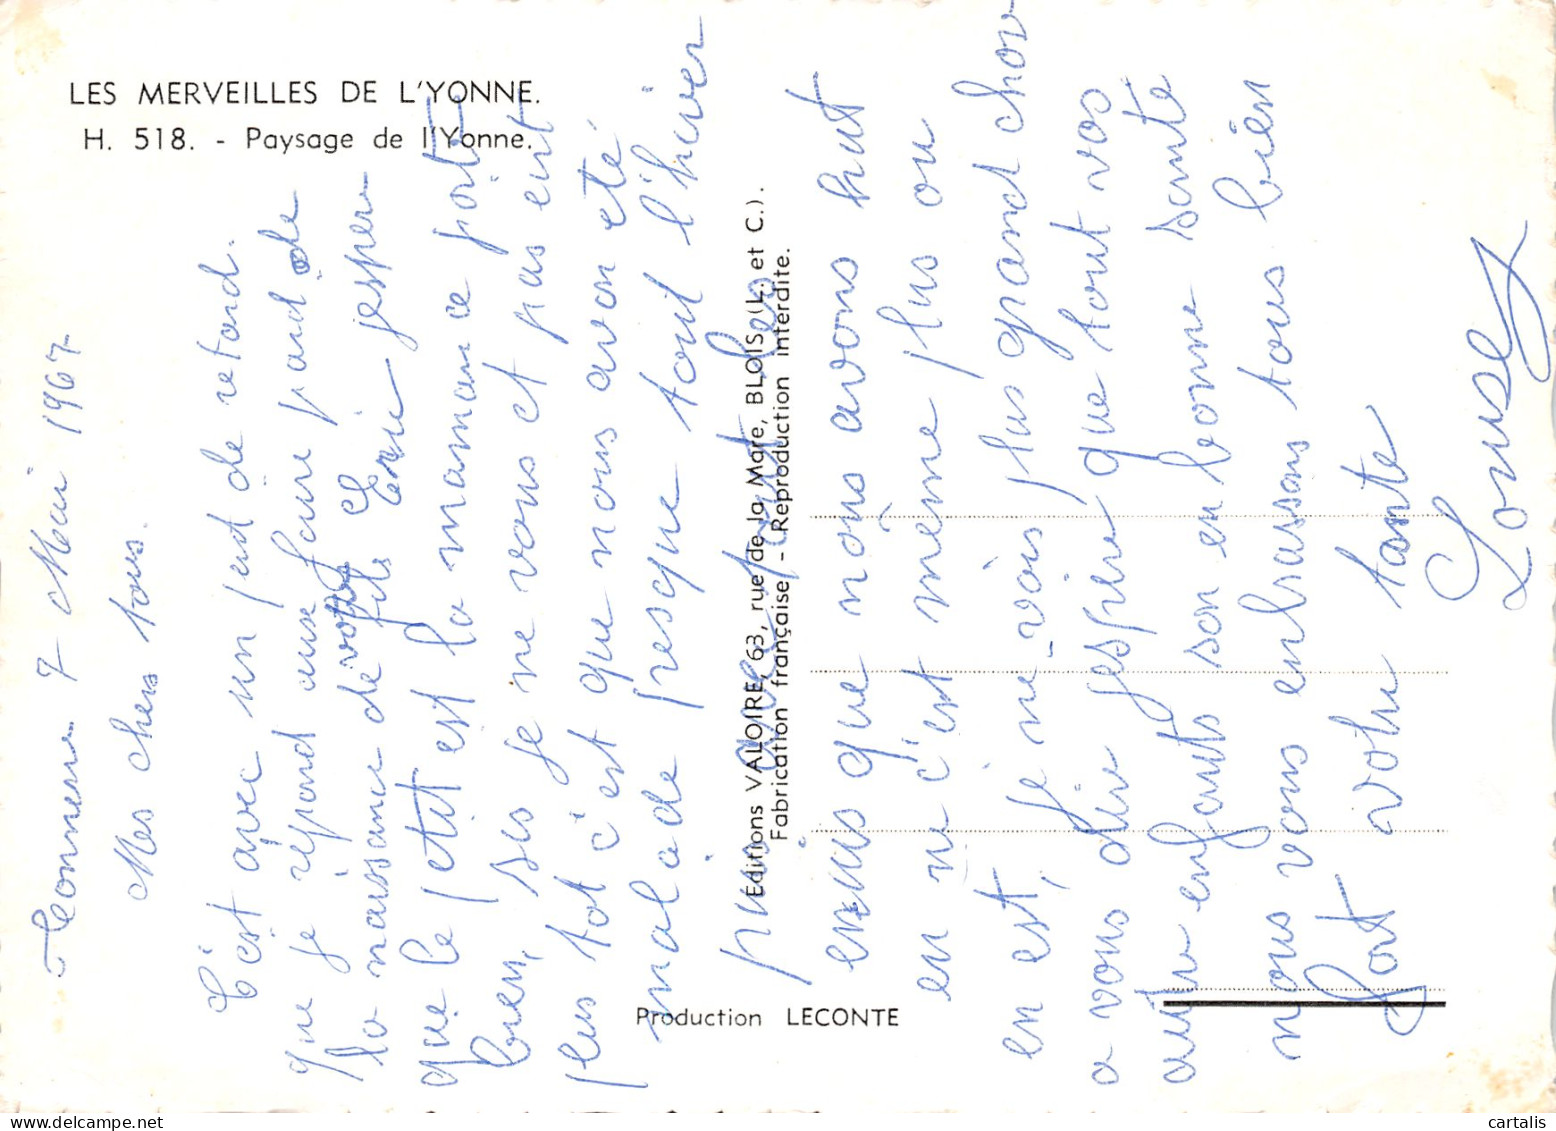 LES MERVEILLES DE L'YONNE.
H. 518. - Paysage de l'Yonne.
Editions VALOIRE, 63, rue de la Mare, BLOIS (L. et C.).
Fabrication française - Reproduction interdite.
Production LECONTE
7 Mai 1967
Mes chers tous.
C'est avec un peut de retard.
que je répond au faire part de
la naissance de votre fils Eric jesper
que le petit est la maman ce porte
bien, je ne vous et pas ecrit
plus tot c'est que nous avon été
malade presque tout l'hiver
puis avec tout les
ennuis que nous avons hut
en ne c'est même plus ou
en est, je ne vois plus grand chose
a vous dire jespère que tout vos
autre enfants son en bonne sante
nous vous enbrassons tous bien
fort votre tante
Louise
cartalis